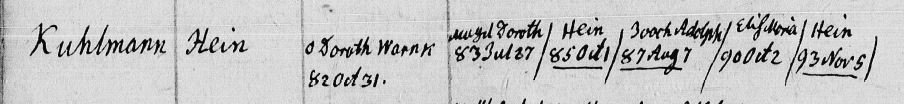 Kuhlmann Hein o Doroth Warnk Magd Doroth / Hein / Joach Adolph / Elis Maria / Hein
82 Oct 31. 83 Jul 27 / 85 Oct 1 / 87 Aug 7 / 90 Oct 2 / 93 Nov 5 /